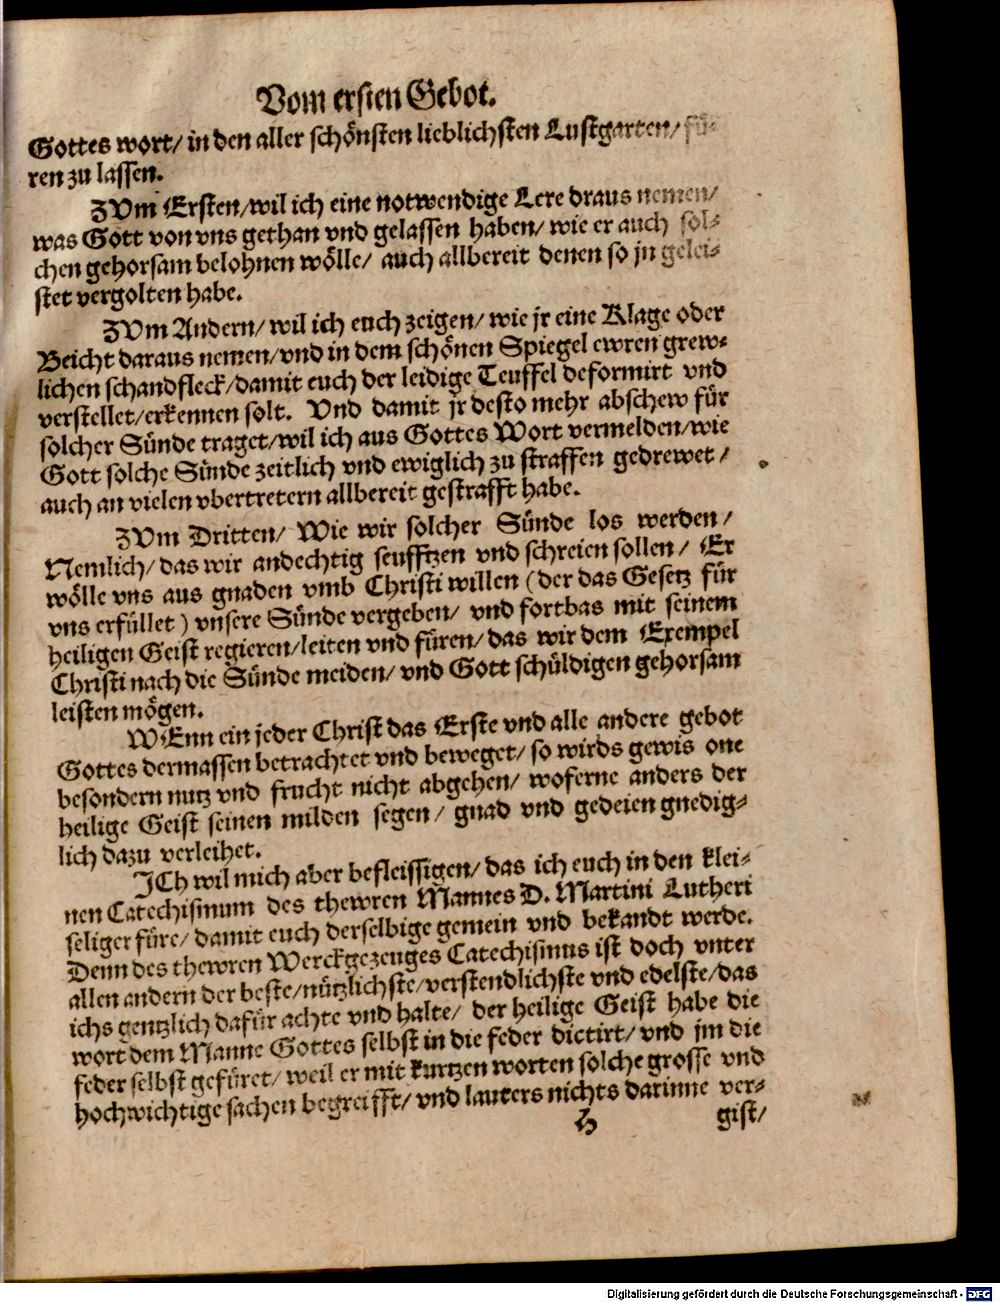 Vom ersten Gebot.
Gottes wort/ in den aller schönsten lieblichsten Lustgarten/ fü-
ren zu lassen.
ZUm Ersten/ wil ich eine notwendige Lere draus nemen/
was Gott von vns gethan vnd gelassen haben/ wie er auch sol-
chen gehorsam belohnen wölle/ auch allbereit denen so jn gelei-
stet vergolten habe.
ZUm Andern/ wil ich euch zeigen/ wie jr eine Klage oder
Beicht daraus nemen/ vnd in dem schönen Spiegel ewren grew-
lichen schandfleck/ damit euch der leidige Teuffel deformirt vnd
verstellet/ erkennen solt. Vnd damit jr desto mehr abschew für
solcher Sünde traget/ wil ich aus Gottes Wort vermelden/ wie
Gott solche Sünde zeitlich vnd ewiglich zu straffen gedrewet/
auch an vielen vbertretern allbereit gestrafft habe.
ZUm Dritten/ Wie wir solcher Sünde los werden/
Nemlich/ das wir andechtig seufftzen vnd schreien sollen/ Er
wölle vns aus gnaden vmb Christi willen (der das Gesetz für
vns erfüllet) vnsere Sünde vergeben/ vnd fortbas mit seinem
heiligen Geist regieren/ leiten vnd füren/ das wir dem Exempel
Christi nach die Sünde meiden/ vnd Gott schüldigen gehorsam
leisten mögen.
WEnn ein jeder Christ das Erste vnd alle andere gebot
Gottes dermassen betrachtet vnd beweget/ so wirds gewis one
besondern nutz vnd frucht nicht abgehen/ woferne anders der
heilige Geist seinen milden segen/ gnad vnd gedeien gnedig-
lich dazu verleihet.
ICh wil mich aber befleissigen/ das ich euch in den klei-
nen Catechismum des thewren Mannes D. Martini Lutheri
seliger füre/ damit euch derselbige gemein vnd bekandt werde.
Denn des thewren Werckgezeuges Catechismus ist doch vnter
allen andern der beste/ nützlichste/ verstendlichste vnd edelste/ das
ichs gentzlich dafür achte vnd halte/ der heilige Geist habe die
wort dem Manne Gottes selbst in die feder dictirt/ vnd jm die
feder selbst gefüret/ weil er mit kurtzen worten solche grosse vnd
hochwichtige sachen begreifft/ vnd lauters nichts darinne ver-
h gist/
Digitalisierung gefördert durch die Deutsche Forschungsgemeinschaft - DFG